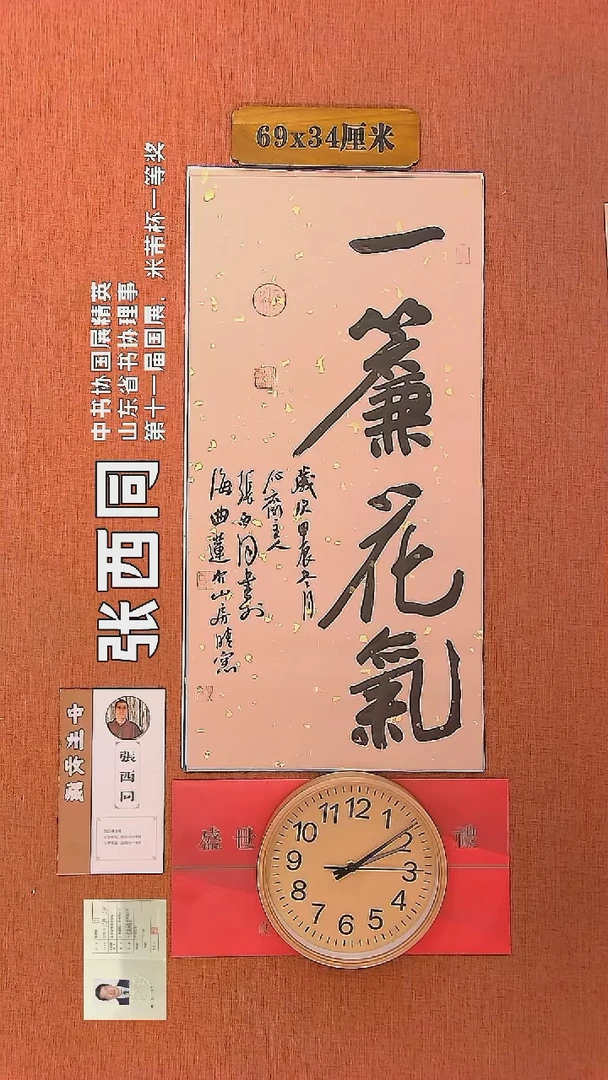 69x34厘米
一簾花氣
歲次甲辰冬月
張西同書於
海曲蓮竹山房晴窗
张西同
中书协国展精英
山东省书协理事
第十一届国展，米芾杯一等奖
張西同
盛世
12
1
2
3
4
5
6
7
8
9
10
11